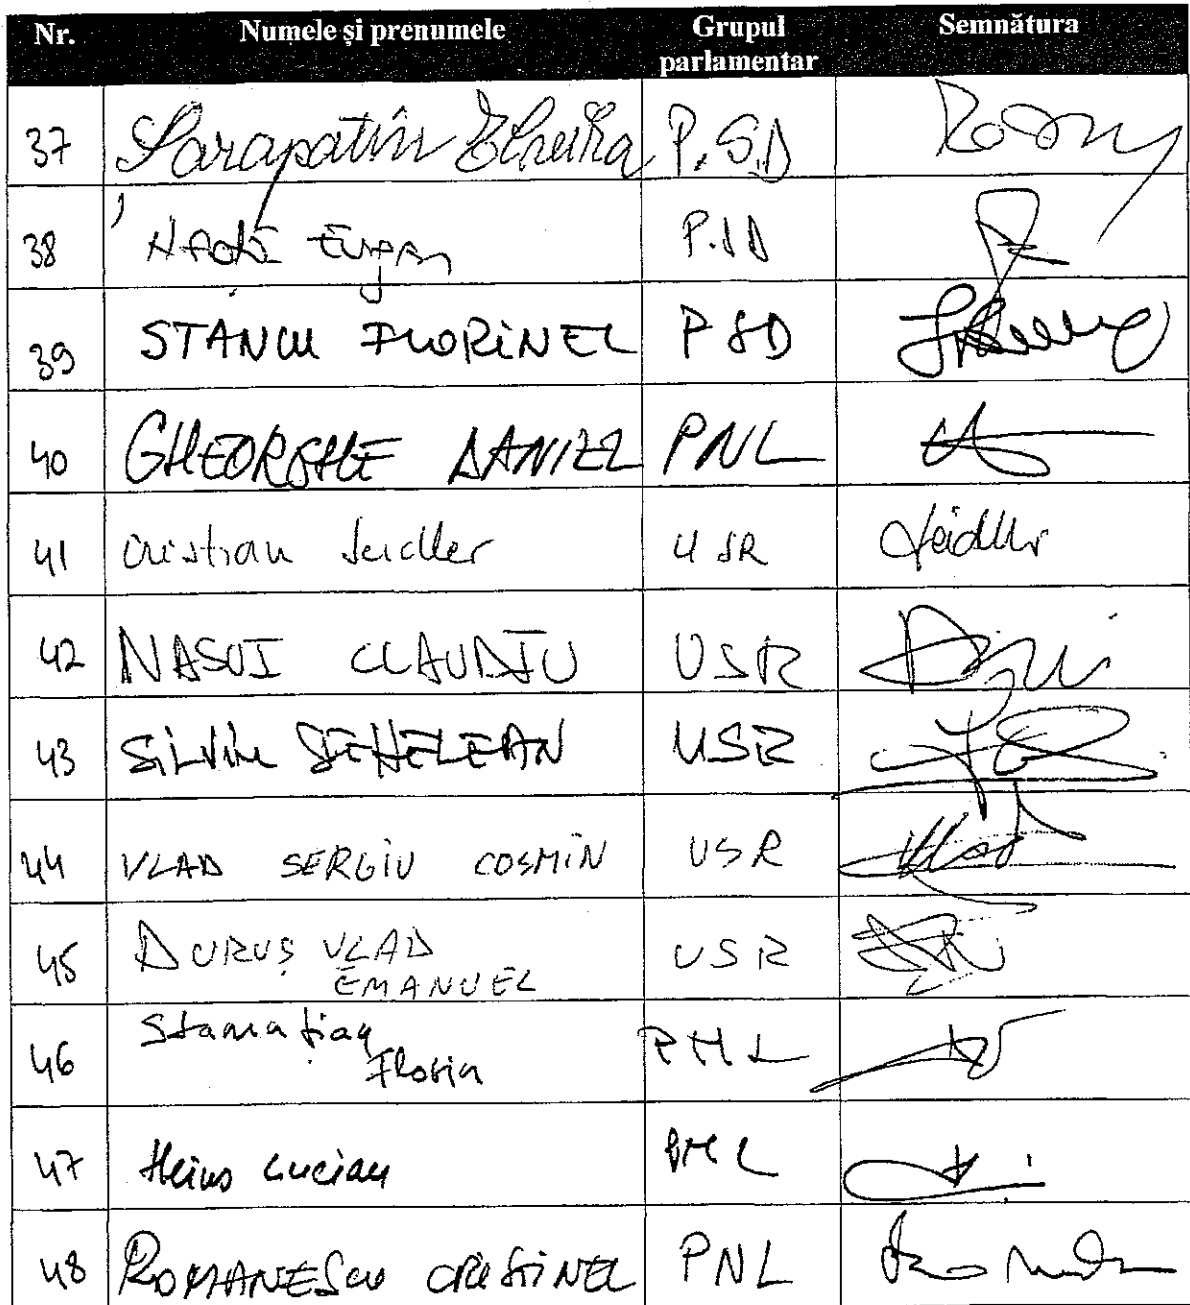 Nr. Numele și prenumele Grupul parlamentar Semnătura
37 Sarapatin P.S.D
38 Eugen P.S.D
39 STANCU FLORINEL PSD
40 GHEORGHE DANIEL PNL
41 Cristian Seidler USR Seidler
42 NASUI CLAUDIU USR
43 SILVIU DEHELEAN USR
44 VLAD SERGIU COSMIN USR Vlad
45 DURUȘ VLAD EMANUEL USR
46 Stamatian Florin PNL
47 Heius Lucian PNL
48 ROMANESCU CRISTINEL PNL